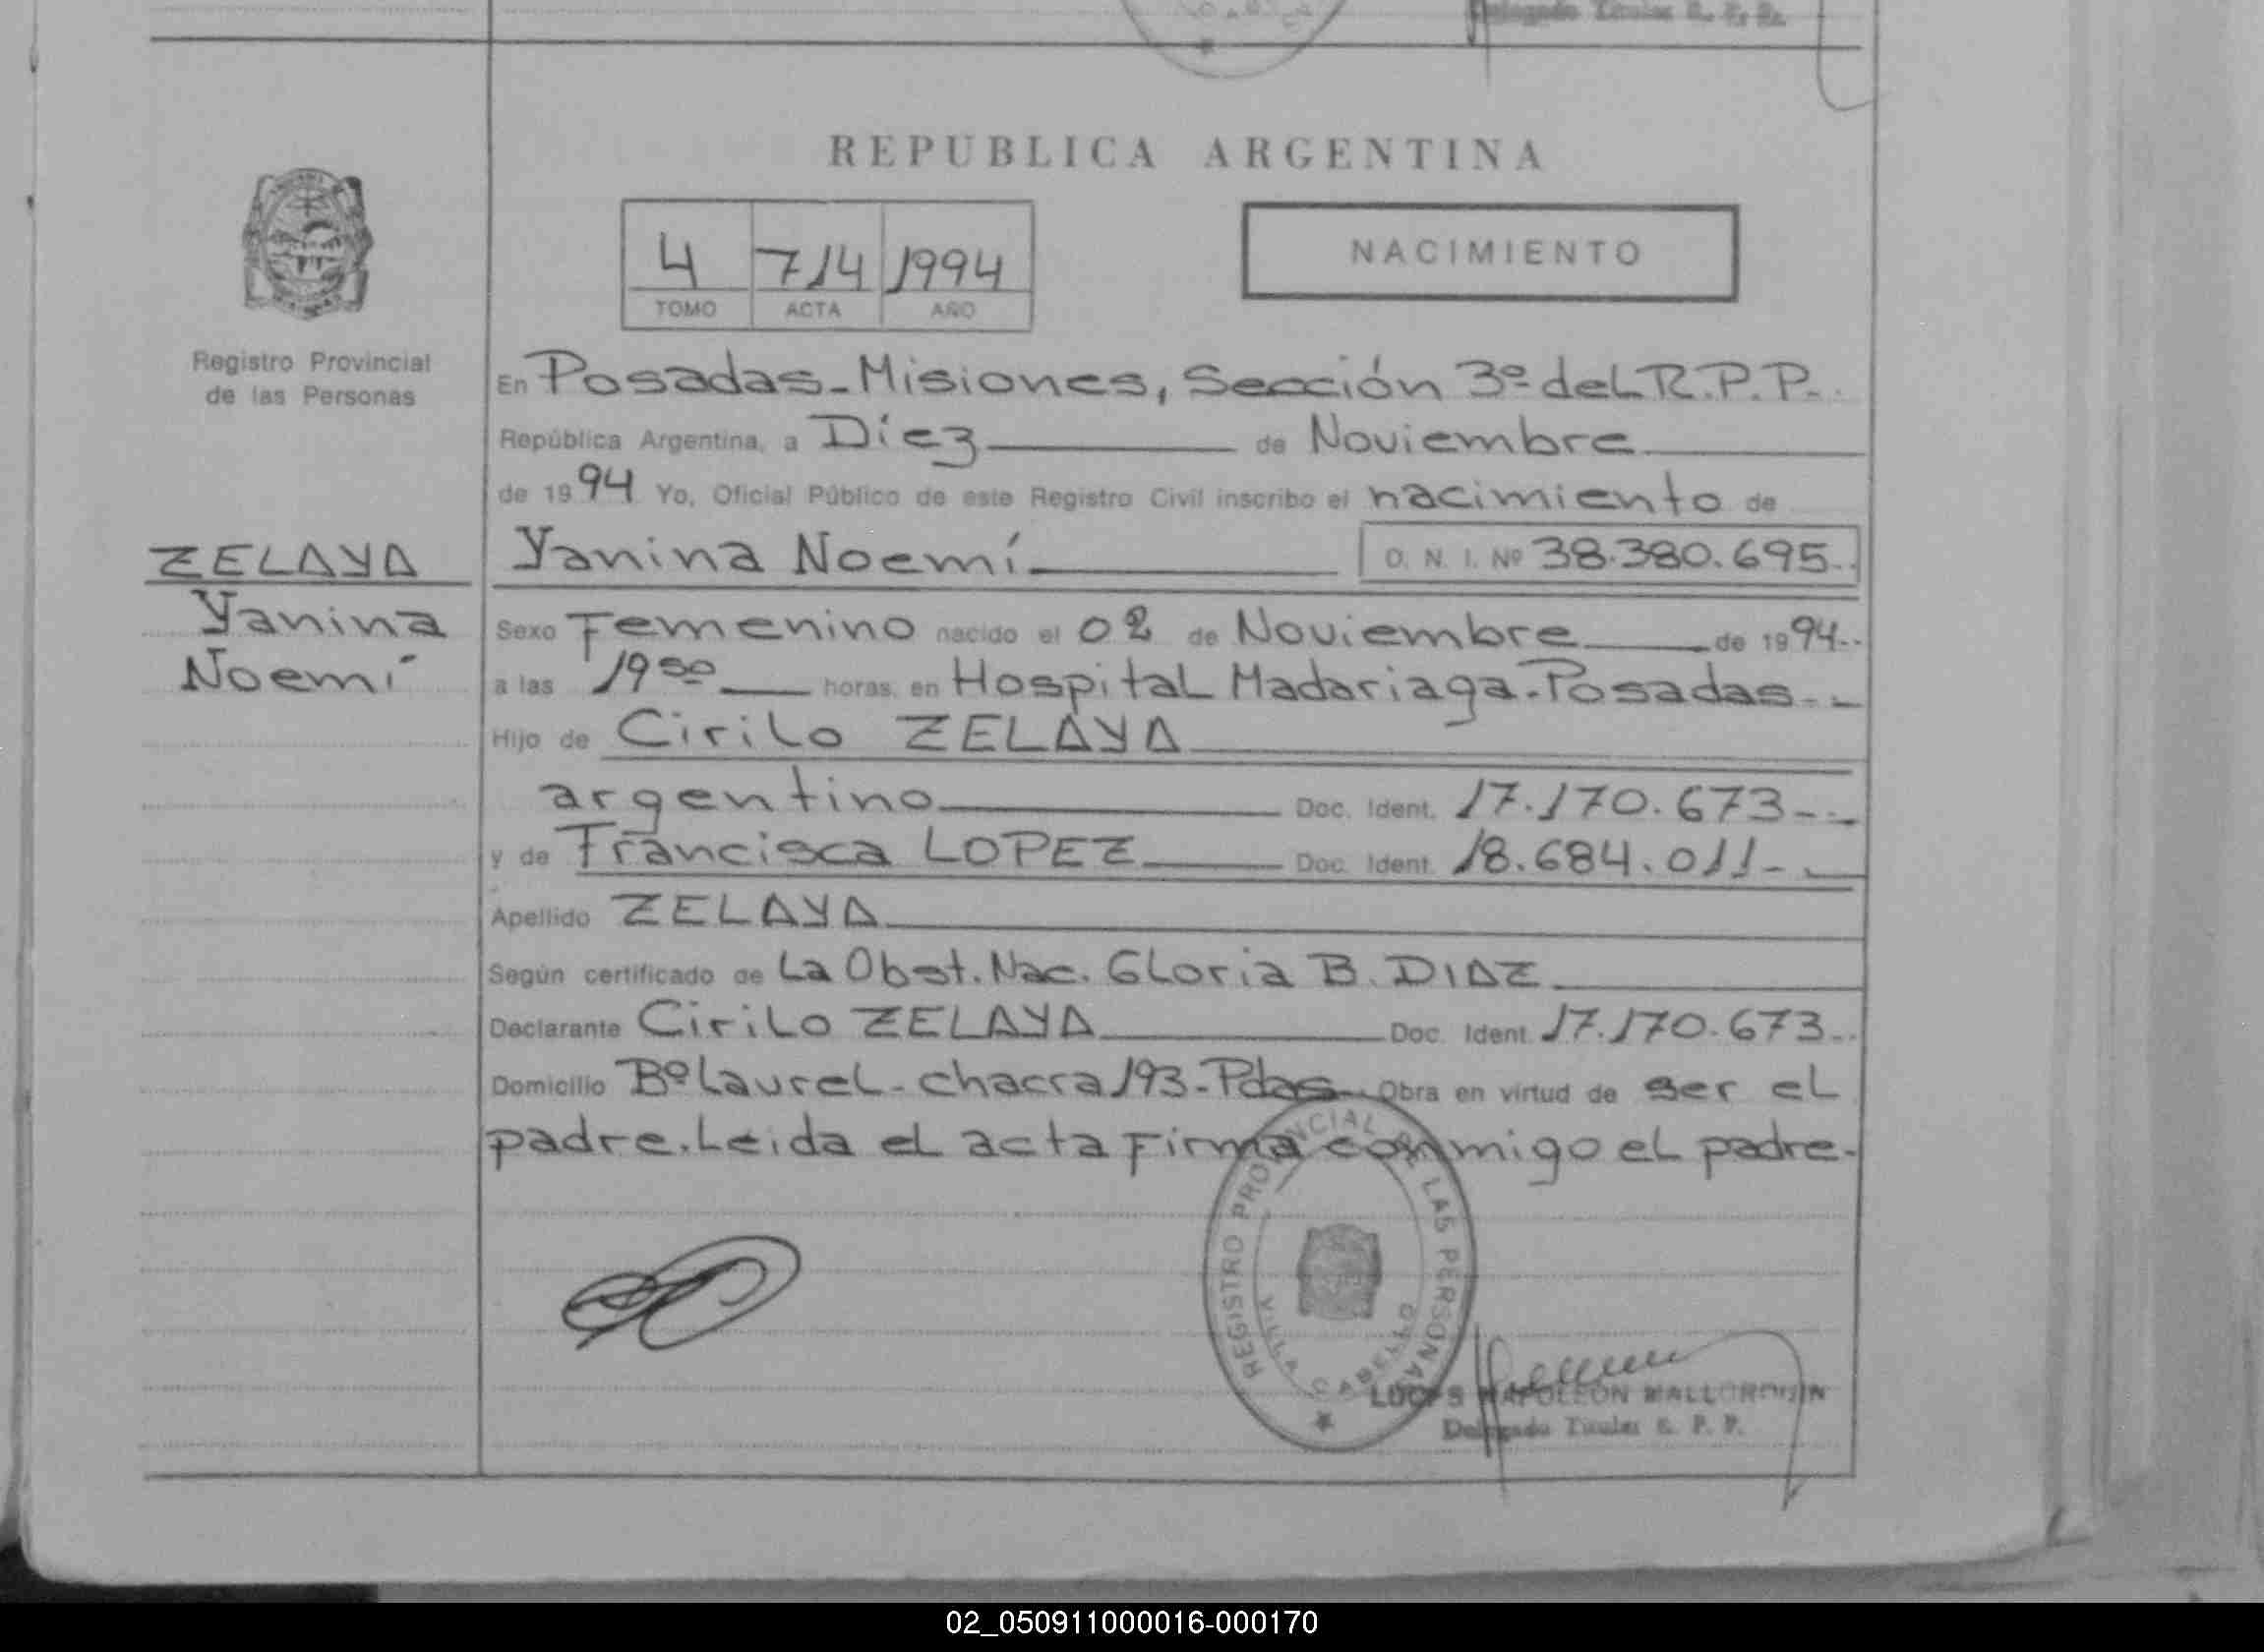 Delegado Titular R. P. P.
REPUBLICA ARGENTINA
4 714 1994
TOMO ACTA AÑO
NACIMIENTO
Registro Provincial
de las Personas
En Posadas-Misiones, Sección 3º del R.P.P.
República Argentina, a Diez de Noviembre
de 1994 Yo, Oficial Público de este Registro Civil inscribo el nacimiento de
ZELAYA
Yanina
Noemí
Yanina Noemí D. N. I. Nº 38.380.695
Sexo Femenino nacido el 02 de Noviembre de 1994
a las 19 50 horas, en Hospital Madariaga-Posadas
Hijo de Cirilo ZELAYA
argentino Doc. Ident. 17.170.673
y de Francisca LOPEZ Doc. Ident. 18.684.011
Apellido ZELAYA
Según certificado de La Obst. Nac. Gloria B. DIAZ
Declarante Cirilo ZELAYA Doc. Ident. 17.170.673
Domicilio Bº Laurel - chacra 193-Pdas Obra en virtud de ser el
padre. Leida el acta firma conmigo el padre.
REGISTRO PROVINCIAL DE LAS PERSONAS
VILLA CABELLO
NAPOLEON MALLORQUIN
Delegado Titular R. P. P.
02_050911000016-000170